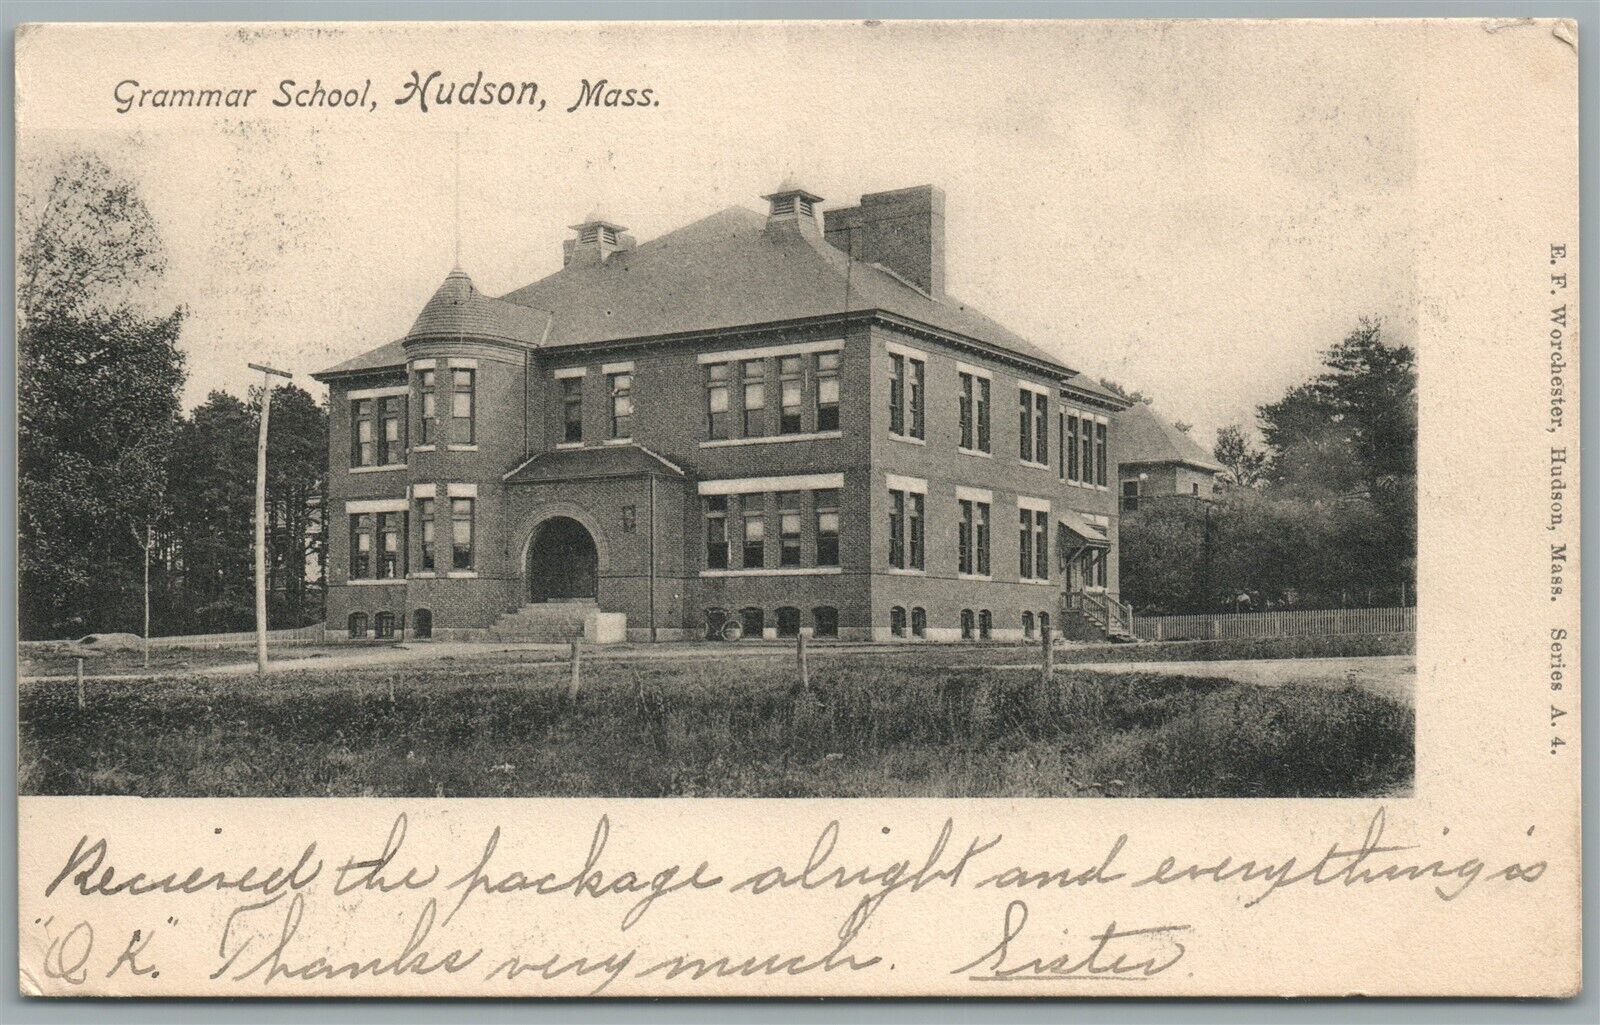 Grammar School, Hudson, Mass.
E. F. Worchester, Hudson, Mass. Series A. 4.
Recieved the package alright and everything is
"O.K." Thanks very much. Sister.